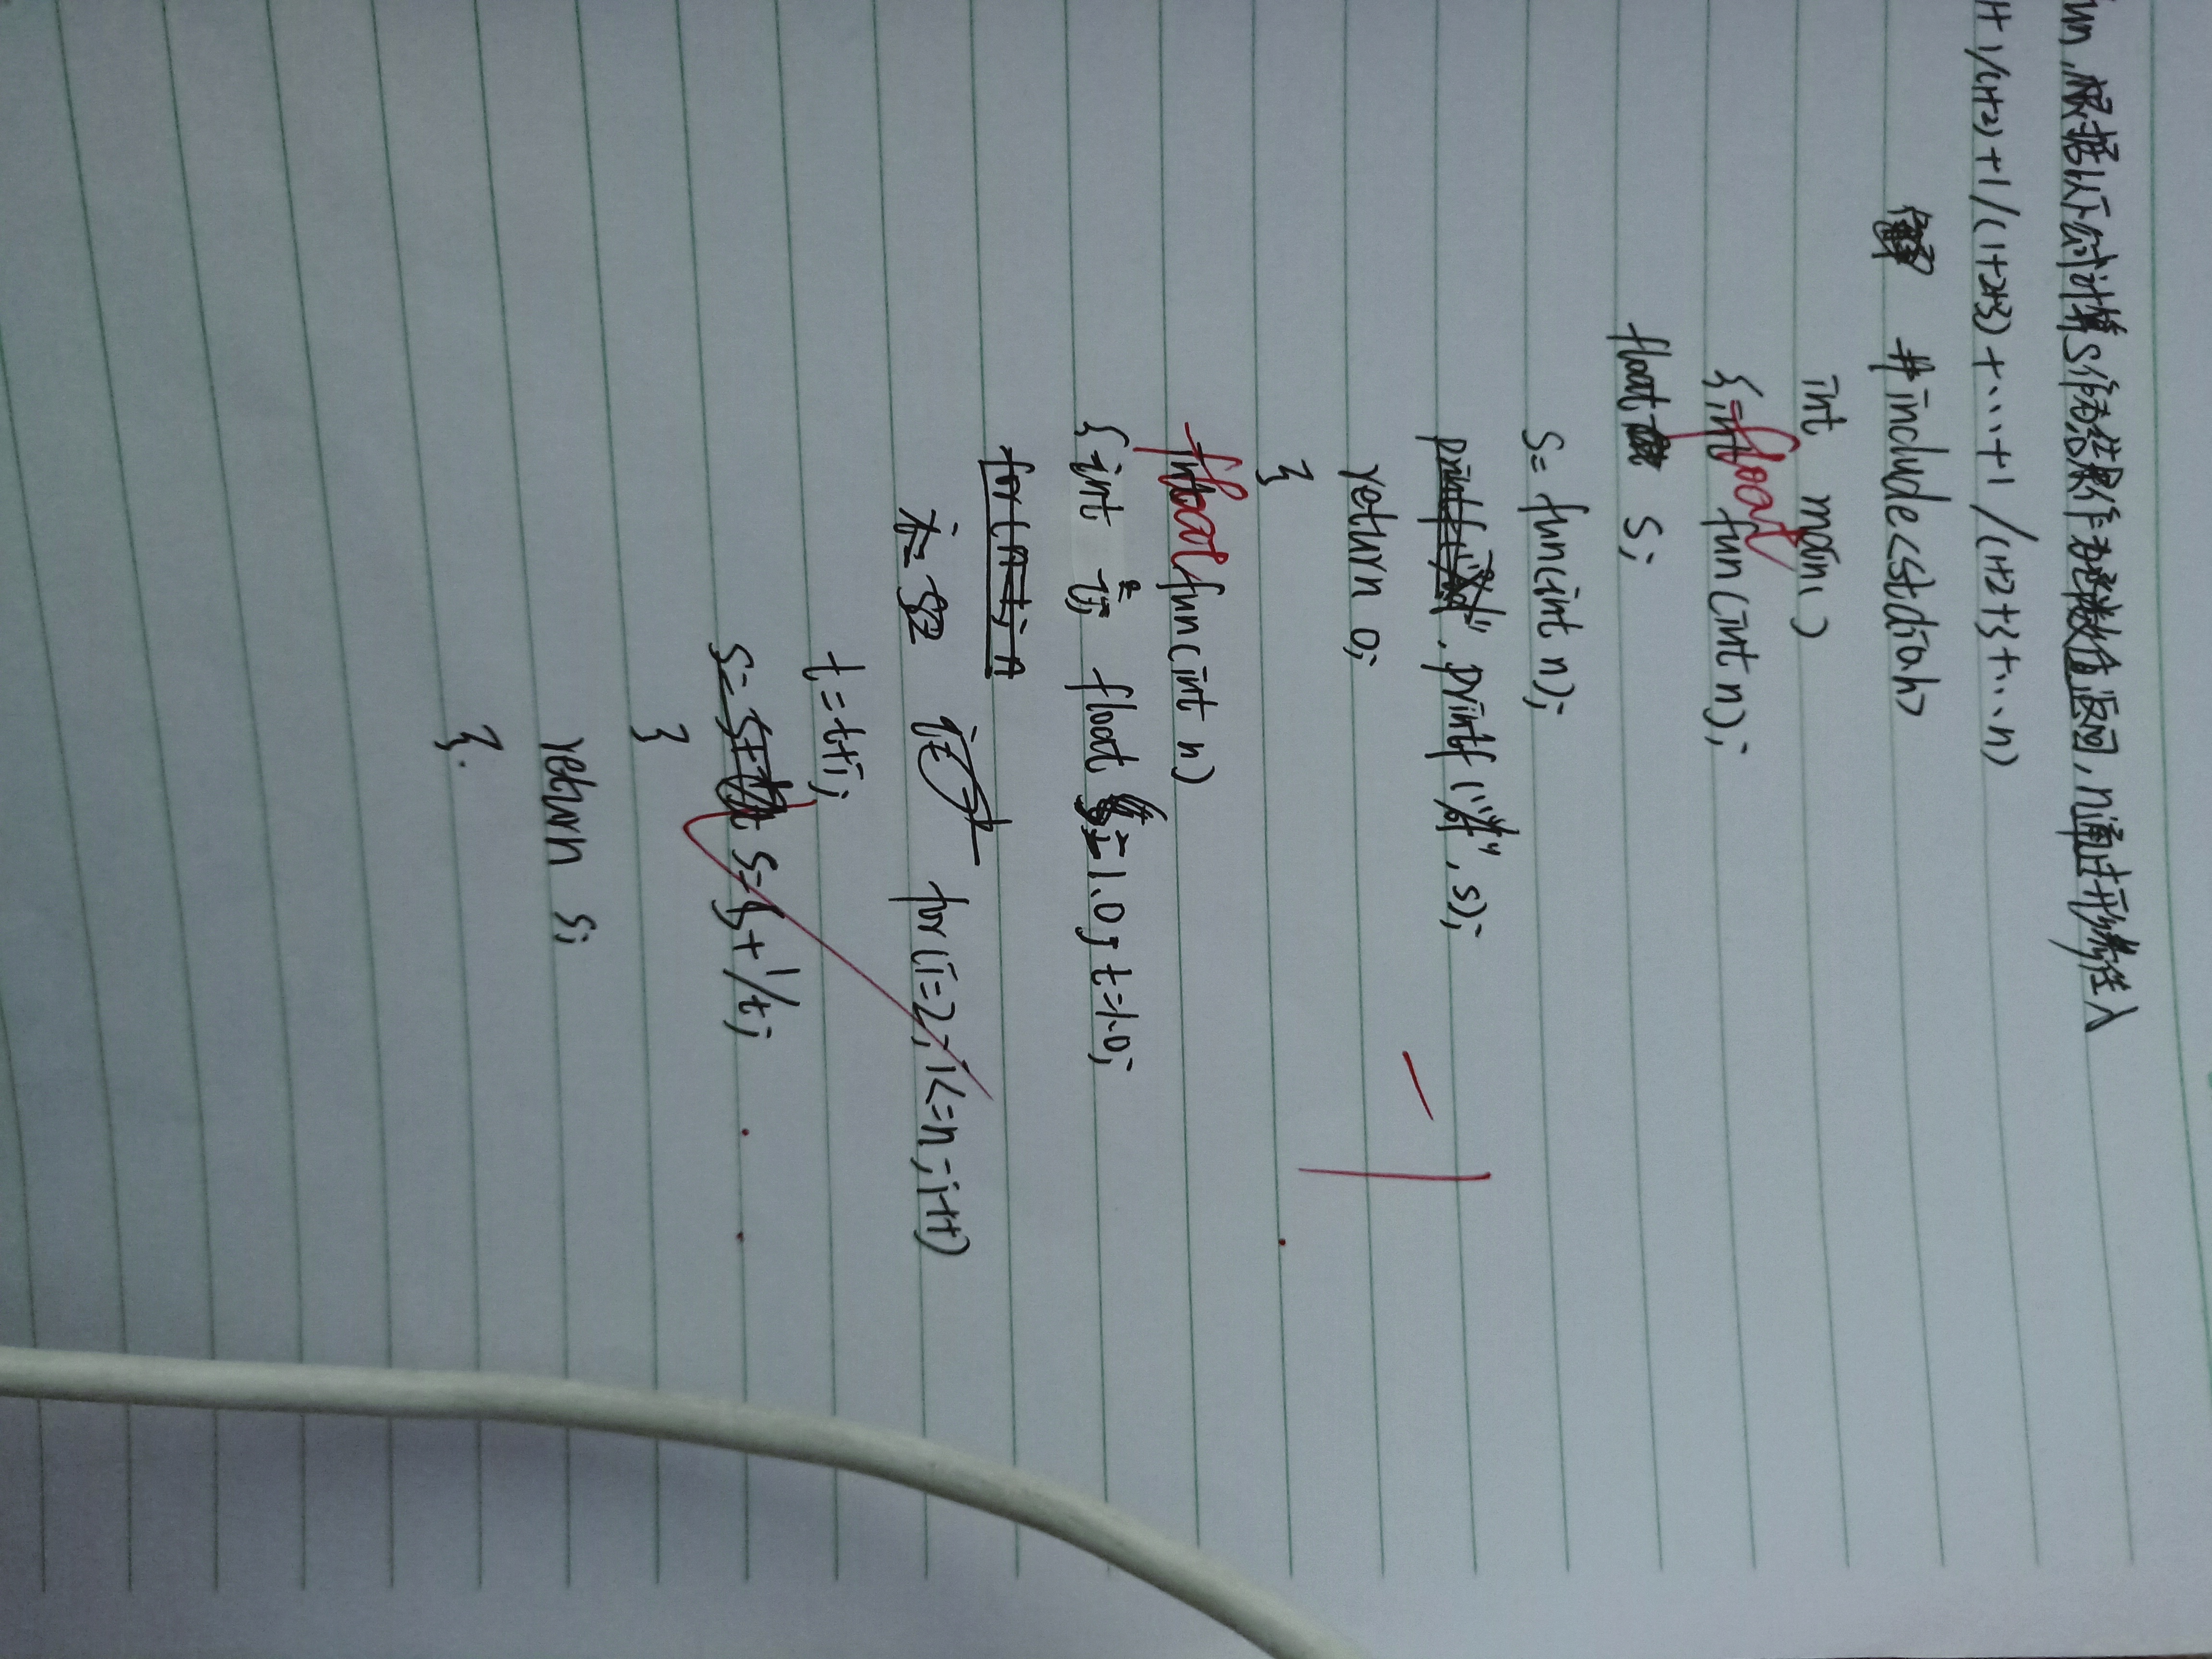 fun,根据以下公式计算S,结果作为函数值返回,n通过形参传入
1+1/(1+2)+1/(1+2+3)+...+1/(1+2+3+...n)
#include<stdio.h>
int main()
{ float fun(int n);
float S;
S=fun(int n);
printf("%f",S);
return 0;
}
float fun(int n)
{ int i; float S=1.0, t=1.0;
for(i=2;i<=n;i++)
t=t+i;
S=S+1/t;
}
return S;
}.